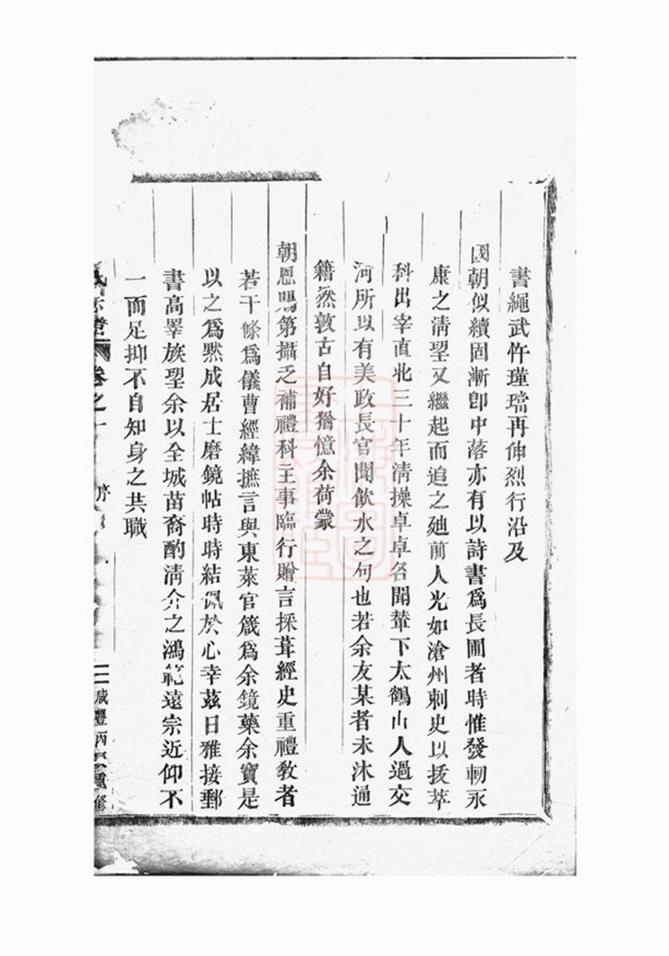 書繩武忤瑾璫再伸烈行沿及
國朝似續固漸卽中落亦有以詩書爲長圃者時惟發軔永
康之清望又繼起而追之廸前人光如滄州刺史以拔萃
科出宰直北三十年清操卓卓名聞輦下太鶴山人過交
河所以有美政長官聞飲水之句也若余友某者未沐通
籍然敦古自好猶憶余荷蒙
朝恩賜第攝乏補禮科主事臨行贈言採葺經史重禮教者
若干條爲儀曹經緯摭言與東萊官箴爲余鏡藥余寶是
以之爲黙成居士磨鏡帖時時結佩於心幸茲日雅接郵
書高睪族望余以全城苗裔酌清介之鴻範遠宗近仰不
一而足抑不自知身之共職
卷之十 序
咸豐丙重修